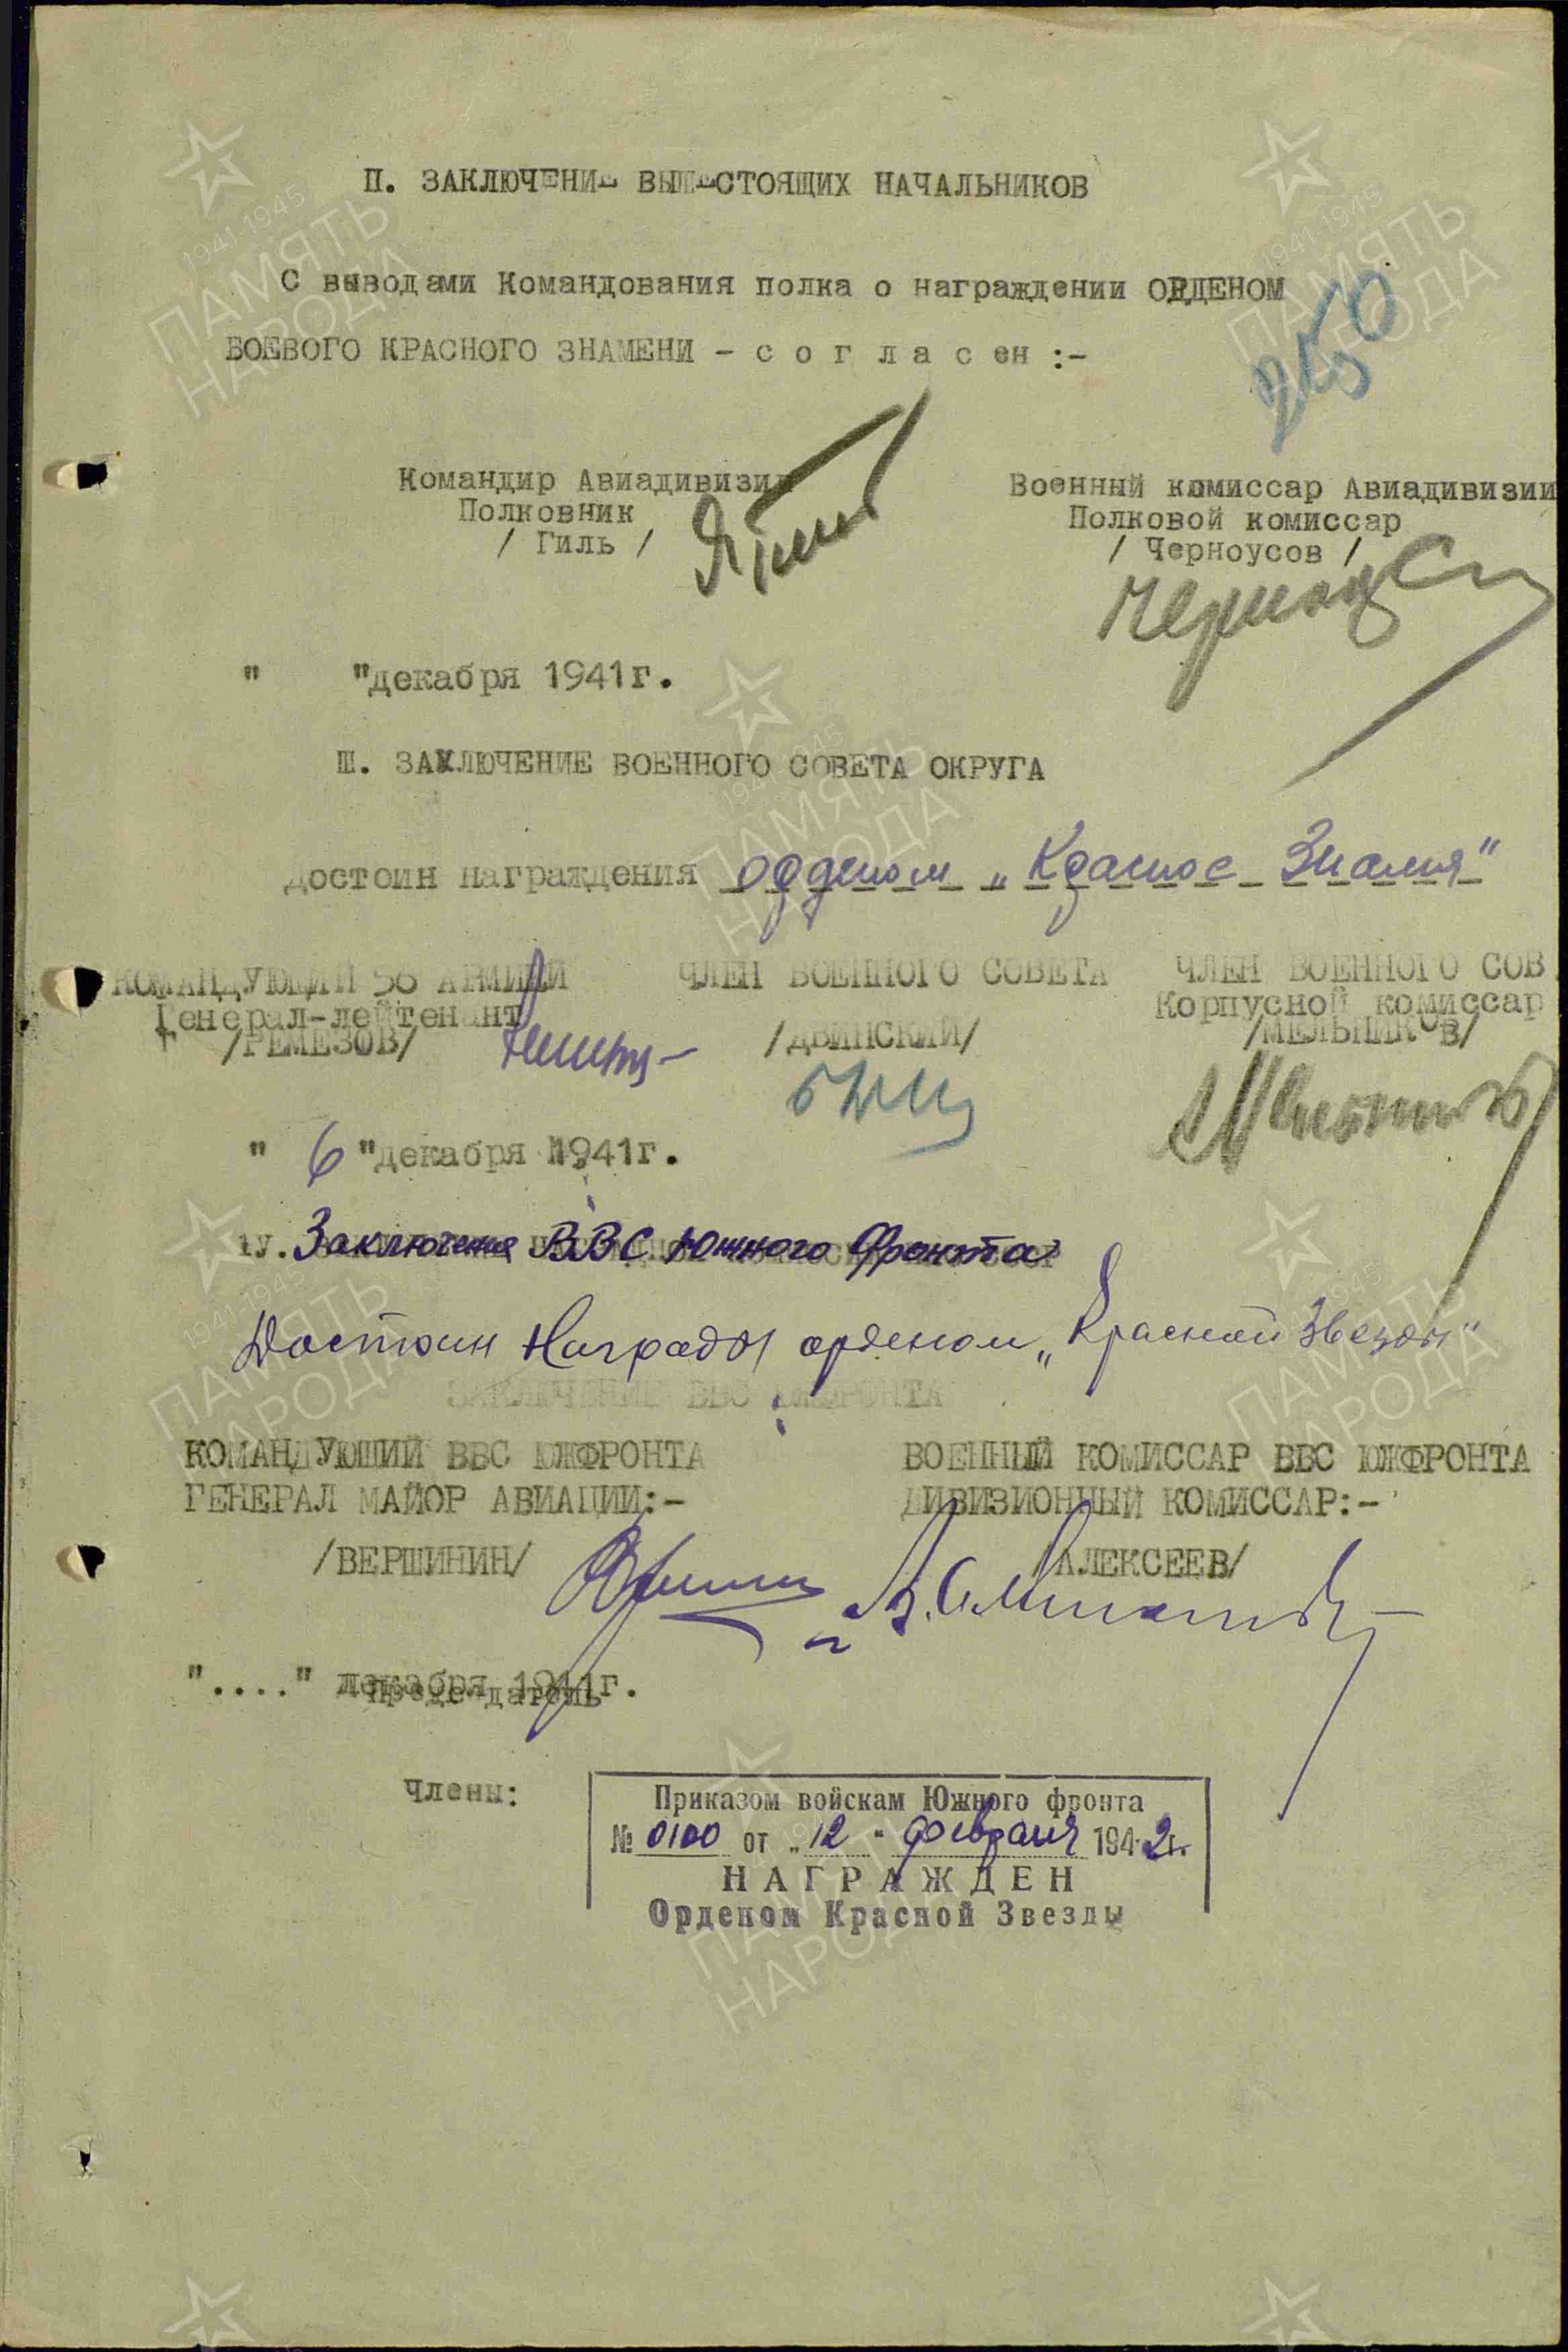 П. ЗАКЛЮЧЕНИЕ ВЫШЕСТОЯЩИХ НАЧАЛЬНИКОВ
С выводами Командования полка о награждении ОРДЕНОМ
БОЕВОГО КРАСНОГО ЗНАМЕНИ – с о г л а с ен :-
250
Командир Авиадивизии
Полковник
/ Гиль /
Военный комиссар Авиадивизии
Полковой комиссар
/ Черноусов /
" "декабря 1941г.
Ш. ЗАКЛЮЧЕНИЕ ВОЕННОГО СОВЕТА ОКРУГА
достоин награждения орденом „Красное Знамя"
КОМАНДУЮЩИЙ 56 АРМИЕЙ
Генерал-лейтенант
/РЕМЕЗОВ/
ЧЛЕН ВОЕННОГО СОВЕТА
/ДВИНСКИЙ/
ЧЛЕН ВОЕННОГО СОВ
Корпусной комиссар
/МЕЛЬНИКОВ/
" 6 "декабря 1941г.
1у. Заключение ВВС Южного Фронта
Достоин Награды орденом „Красной Звезды"
ЗАКЛЮЧЕНИЕ ВВС ЮЖФРОНТА
КОМАНДУЮЩИЙ ВВС ЮЖФРОНТА
ГЕНЕРАЛ МАЙОР АВИАЦИИ:-
/ВЕРШИНИН/
ВОЕННЫЙ КОМИССАР ВВС ЮЖФРОНТА
ДИВИЗИОННЫЙ КОМИССАР:-
/АЛЕКСЕЕВ/
"...." декабря 1941г.
Председатель
Члены:
Приказом войскам Южного фронта
№ 0100 от „12" февраля 1942г.
НАГРАЖДЕН
Орденом Красной Звезды
1941-1945
ПАМЯТЬ
НАРОДА